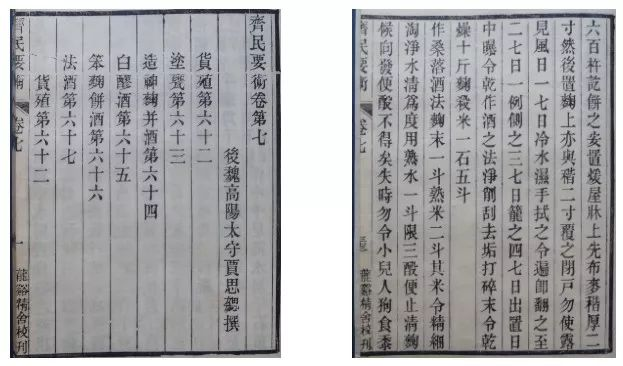 齊民要術卷第七
後魏高陽太守賈思勰撰
貨殖第六十二
塗甕第六十三
造神麴并酒第六十四
白醪酒第六十五
笨麴餅酒第六十六
法酒第六十七
貨殖第六十二
齊民要術 卷七 一 龍谿精舍校刊
六百杵訖餅之安置煖屋牀上先布麥䅖厚二
寸然後置麴上亦與䅖二寸覆之閉戶勿使露
見風日一七日冷水濕手拭之令遍卽翻之至
二七日一例側之三七日籠之四七日出置日
中曝令乾作酒之法淨削刮去垢打碎末令乾
燥十斤麴殺米一石五斗
作桑落酒法麴末一斗熟米二斗其米令精細
淘淨水清爲度用熟水一斗限三酘便止清麴
候向發使酘不得矣失時勿令小兒人狗食黍
齊民要術 卷七 龍谿精舍校刊